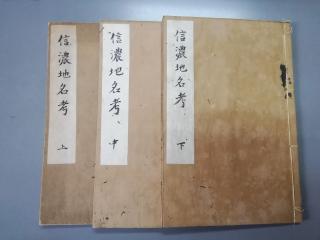 信濃地名考
上
信濃地名考
中
信濃地名考
下